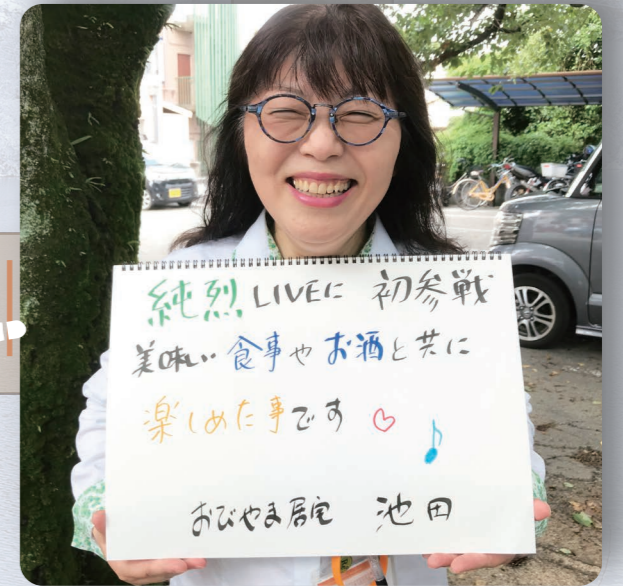 純烈 LIVEに 初参戦
美味い 食事や お酒と共に
楽しめた事です ♡ ♪
おびやま居宅 池田